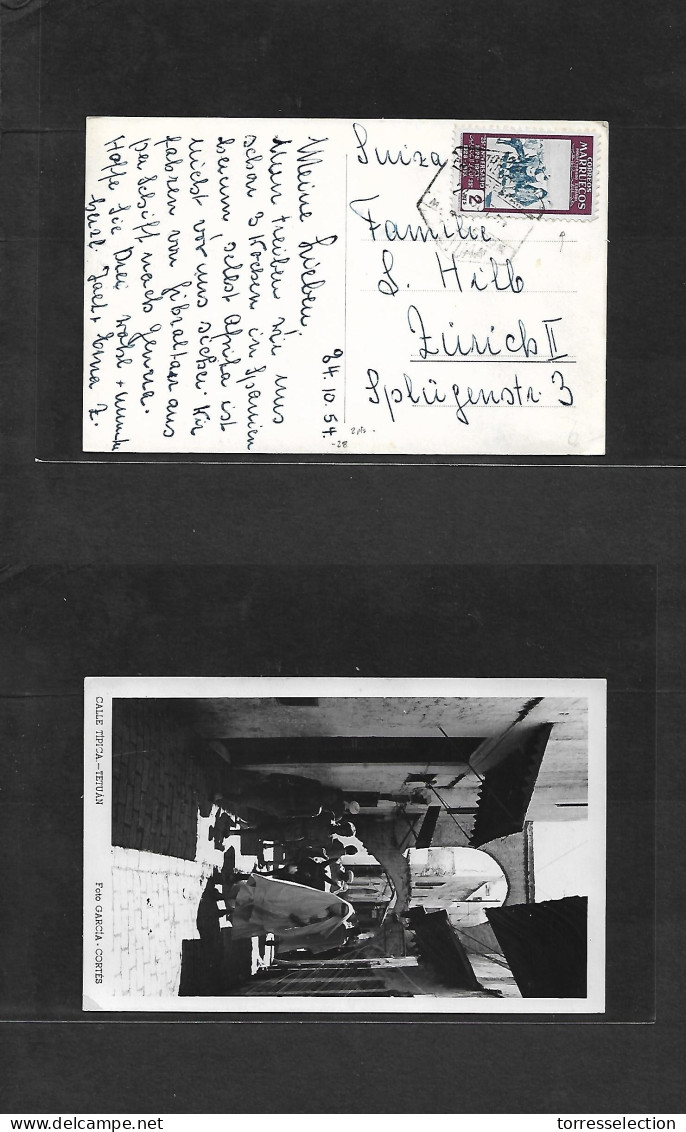 24.10.54.
Meine Lieben,
Nun treiben wir uns
schon 3 Wochen in Spanien
herum, selbst Afrika ist
nicht vor uns sicher. Wir
fahren von Gibraltar aus
per Schiff nach Genua.
Hoffe Sie Drei wohl + munter
Erna Z.
Suiza
Familie
S. Hilb
Zürich II
Splügenstr. 3
CORREOS
MARRUECOS
2
2 pts.
-28
CALLE TÍPICA.-TETUÁN
Foto GARCÍA-CORTÉS
delcampe.net
torresselection